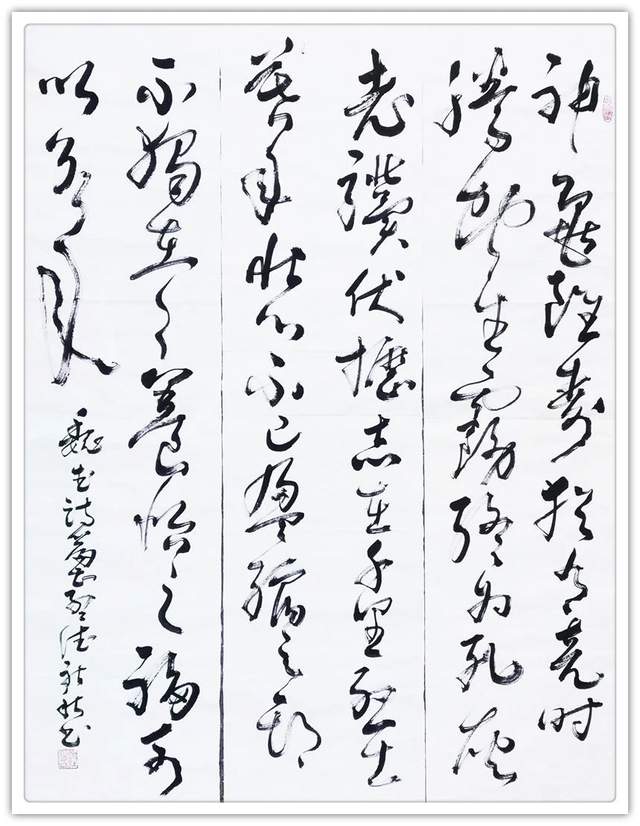 神龜雖壽猶有竟时
騰蛇生霧終为死灰
老驥伏櫪志在千里烈士
暮年壯心不已盈縮之期
不獨在天養怡之福可
以永年
魏武詩篇